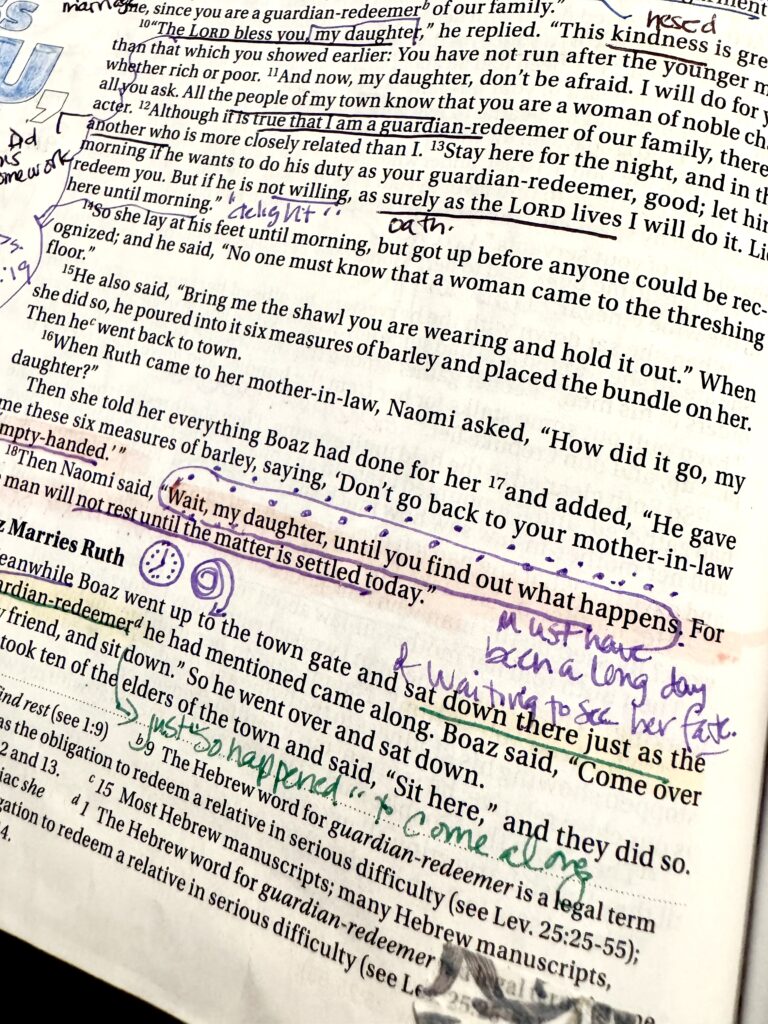 marriage
me, since you are a guardian-redeemerᵇ of our family.”
hesed
¹⁰“The LORD bless you, my daughter,” he replied. “This kindness is gre
than that which you showed earlier: You have not run after the younger m
whether rich or poor. ¹¹And now, my daughter, don’t be afraid. I will do for y
all you ask. All the people of my town know that you are a woman of noble ch
acter. ¹²Although it is true that I am a guardian-redeemer of our family, there
another who is more closely related than I. ¹³Stay here for the night, and in th
morning if he wants to do his duty as your guardian-redeemer, good; let him
redeem you. But if he is not willing, as surely as the LORD lives I will do it. Lie
here until morning.”
"delight"
oath.
¹⁴So she lay at his feet until morning, but got up before anyone could be rec-
ognized; and he said, “No one must know that a woman came to the threshing
floor.”
¹⁵He also said, “Bring me the shawl you are wearing and hold it out.” When
she did so, he poured into it six measures of barley and placed the bundle on her.
Then heᶜ went back to town.
¹⁶When Ruth came to her mother-in-law, Naomi asked, “How did it go, my
daughter?”
Then she told her everything Boaz had done for her ¹⁷and added, “He gave
me these six measures of barley, saying, ‘Don’t go back to your mother-in-law
mpty-handed.’”
¹⁸Then Naomi said, “Wait, my daughter, until you find out what happens. For
man will not rest until the matter is settled today.”
Must have
been a long day
& waiting to see her fate.
z Marries Ruth
eanwhile Boaz went up to the town gate and sat down there just as the
ardian-redeemerᵈ he had mentioned came along. Boaz said, “Come over
y friend, and sit down.” So he went over and sat down.
took ten of the elders of the town and said, “Sit here,” and they did so.
just "so happened" to come along
ind rest (see 1:9)
ᵇ9 The Hebrew word for guardian-redeemer is a legal term
as the obligation to redeem a relative in serious difficulty (see Lev. 25:25-55);
2 and 13.
ᶜ15 Most Hebrew manuscripts; many Hebrew manuscripts,
iac she
ᵈ1 The Hebrew word for guardian-redeemer
gation to redeem a relative in serious difficulty (see Le
4.